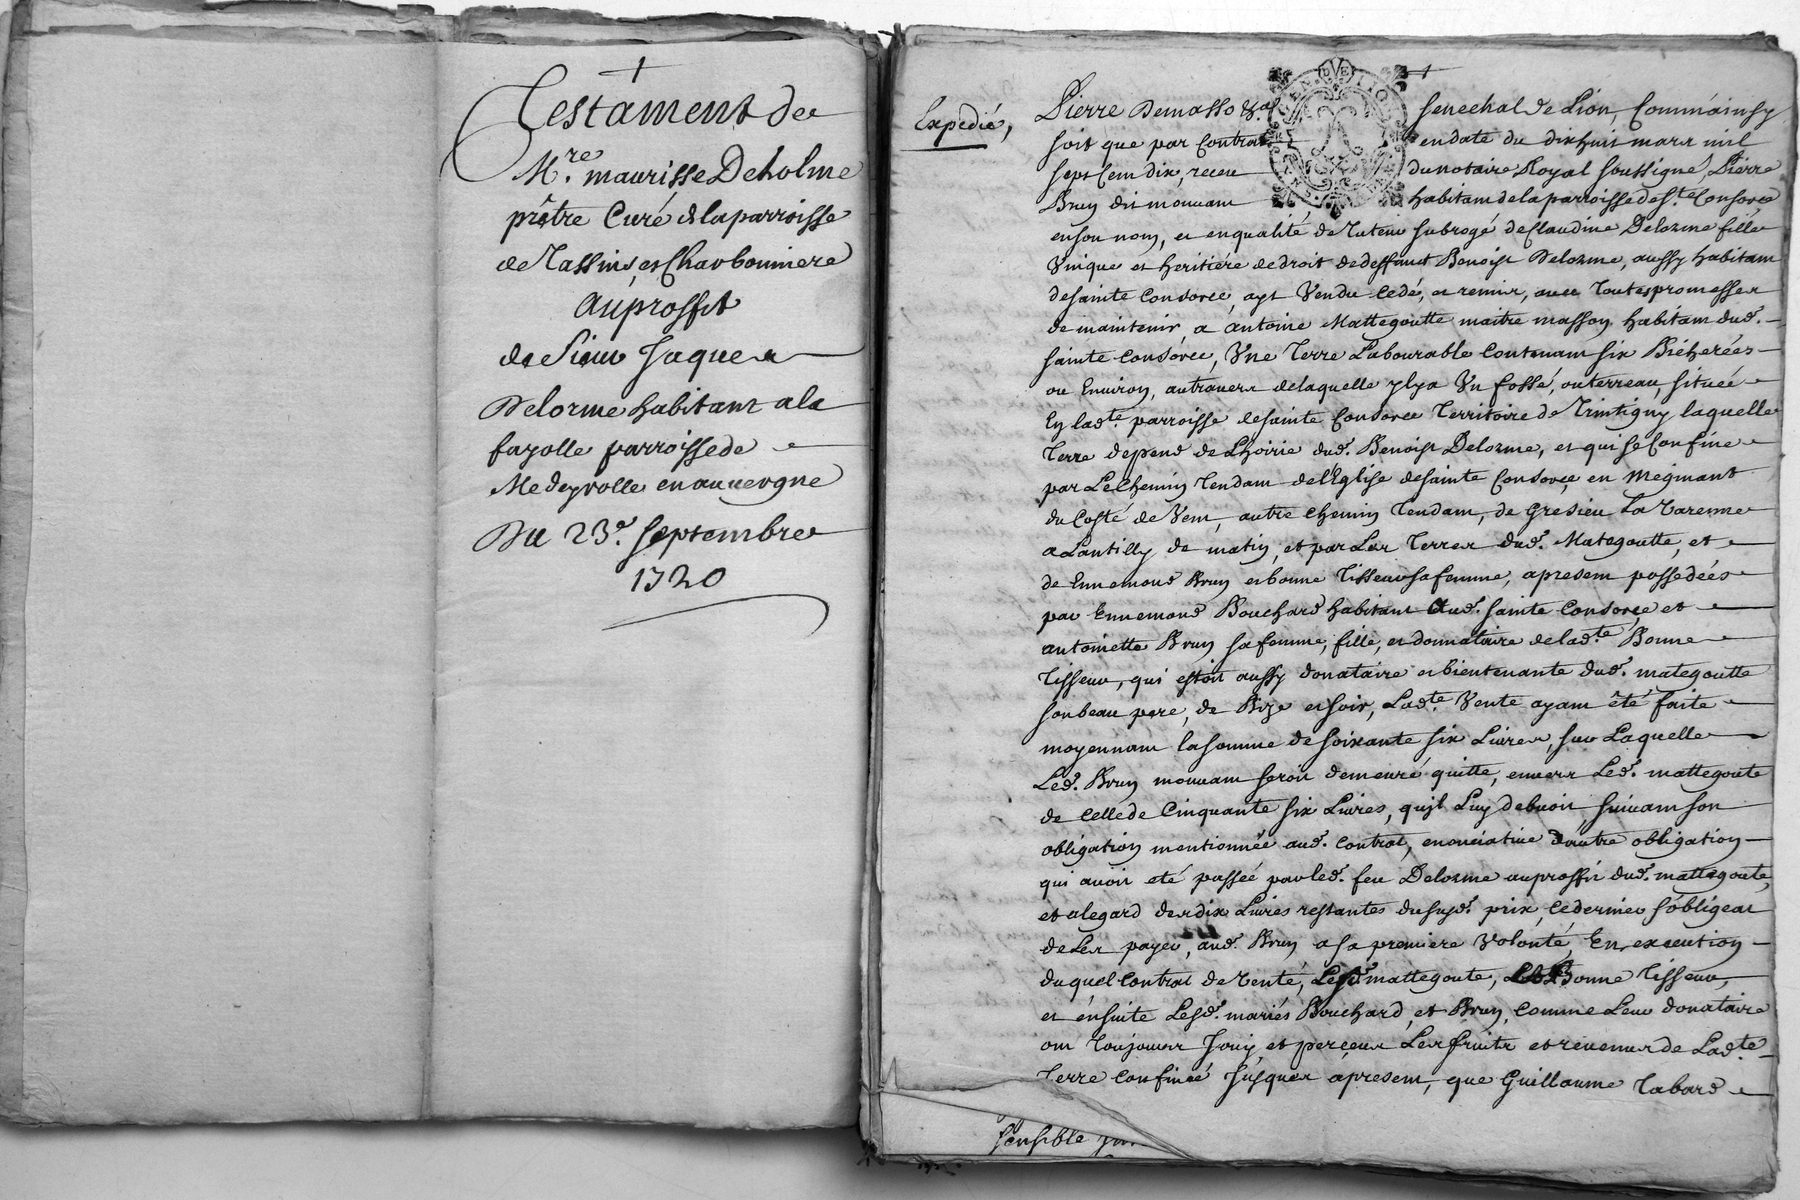 Testament de
M.re maurisse Deholme
prêtre Curé de la parroisse
de Tassins et Charbonniere
au proffit
de Sieur Jaques
Delorme habitant a la
fayolle parroisse de
Medeyrolle en auvergne
Du 23e. septembre
1720
Expedié,
Pierre Demasso &.a Senechal de Lion, Comm'ainsy
soit que par Contrat en date du dixhuit mars mil
sept Cent dix, receu du notaire Royal soussigné, Pierre
Brun dit mouvant habitant de la parroisse de S.te Consorce
en son nom, et en qualité de Tuteur subrogé de Claudine Delorme fille
Unique et heritiére de droit de deffunct Benoist Delorme, aussy habitant
de sainte Consorce, ayt Vendu cedé, et remis, avec Toutes promesses
de maintenir a antoine Mattegoutte maitre masson habitant dud.
sainte Consorce, Une Terre Labourable Contenant six Bicherées
ou Environ, au travers de laquelle y ly a Un fossé, ou terreau, située
En lad.te parroisse de sainte Consorce Territoire de Trintigny laquelle
Terre depend de Lhoirie dud. Benoist Delorme, et qui se Confine
par Le Chemin Tendant de l'Eglise de sainte Consorce en Meginant
du Costé de Vent, autre Chemin Tendant, de Gresieu La Varenne
a Lantilly de matin, et par Les Terres dud. Mategoutte, et
de Ennemond Brun et bonne Tisseur sa femme, a present possedées
par Ennemond Bouchard habitant aud. sainte Consorce et
antoinette Brun sa femme, fille, et donnataire de lad.te Bonne
Tisseur, qui estoit aussy donataire et bientenante dud. mategoutte
son beau pere, de Bize et soir, Lad.te Vente ayant êté faite
moyennant la somme de soixante six Livres, sur Laquelle
Led. Brun mouvant seroit demeuré quitte, envers Led. mattegoute
de Celle de Cinquante six Livres, qu'jl Luy debvoit, suivant son
obligation mentionnée aud. Contrat, enonciative d'autre obligation
qui avoit eté passée par led. feu Delorme au proffit dud. mattegoute,
et a legard des dix Livres restantes du susd. prix, Ce dernier s'obligeat
de Les payer, aud. Brun a sa premiere Volonté, En execution
du quel Contrat de Vente, Led. mattegoute, Bonne Tisseur,
et ensuite Lesd. mariés Bouchard, et Brun, Comme Leur donataire
ont Toujours Jouy, et perceus Les fruits et revenus de Lad.te
Terre Confinée Jusques a present, que Guillaume Tabard
sensible